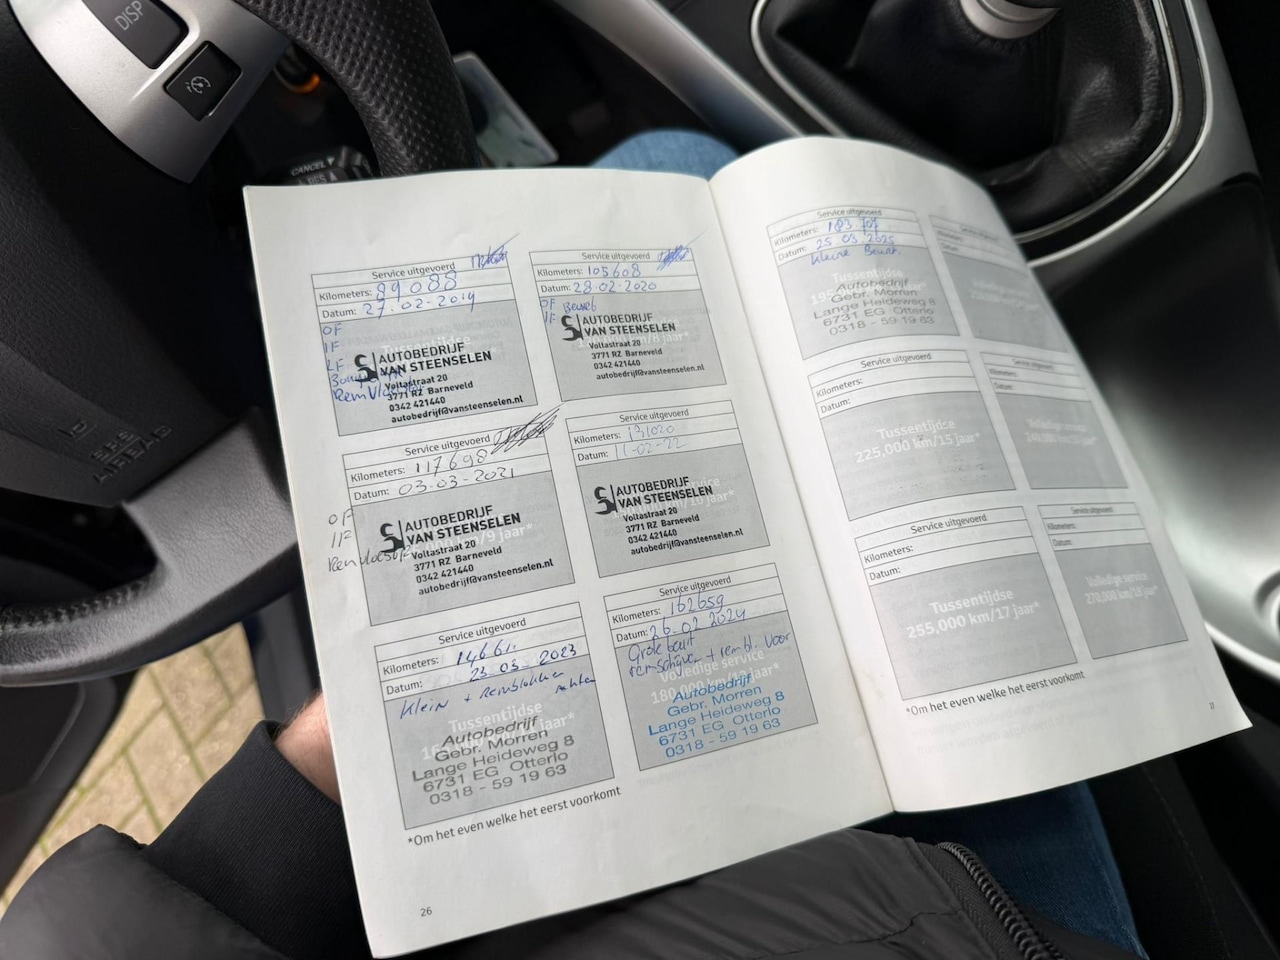 DISP
CANCEL
RES
SRS
AIRBAG
Service uitgevoerd
Kilometers: 89088
Datum: 27-02-2019
OF
IF
LF
AUTOBEDRIJF
VAN STEENSELEN
Voltastraat 20
3771 RZ Barneveld
0342 421440
autobedrijf@vansteenselen.nl
Service uitgevoerd
Kilometers: 105608
Datum: 28-02-2020
OF
IF
/8 jaar*
AUTOBEDRIJF
VAN STEENSELEN
Voltastraat 20
3771 RZ Barneveld
0342 421440
autobedrijf@vansteenselen.nl
Service uitgevoerd
Kilometers: 117698
Datum: 03-03-2021
OF
IF
Remvloeistof
km/9 jaar*
AUTOBEDRIJF
VAN STEENSELEN
Voltastraat 20
3771 RZ Barneveld
0342 421440
autobedrijf@vansteenselen.nl
Service uitgevoerd
Kilometers: 131020
Datum: 11-02-22
AUTOBEDRIJF
VAN STEENSELEN
Voltastraat 20
3771 RZ Barneveld
0342 421440
autobedrijf@vansteenselen.nl
Service uitgevoerd
Kilometers:
Datum: 23-03-2023
Klein + Remblokken
Achter
Tussentijdse
Autobedrijf
Gebr. Morren
Lange Heideweg 8
6731 EG Otterlo
0318 - 59 19 63
Service uitgevoerd
Kilometers: 162659
Datum: 26-02-2024
Grote beurt
remschijven + rembl. voor
Volledige service
180,000 km/12 jaar*
Autobedrijf
Gebr. Morren
Lange Heideweg 8
6731 EG Otterlo
0318 - 59 19 63
*Om het even welke het eerst voorkomt
26
Service uitgevoerd
Kilometers: 183 707
Datum: 25 03 2025
Kleine Beurt.
Tussentijdse
Autobedrijf
Gebr. Morren
Lange Heideweg 8
6731 EG Otterlo
0318 - 59 19 63
Service uitgevoerd
Kilometers:
Datum:
Service uitgevoerd
Kilometers:
Datum:
Tussentijdse
225,000 km/15 jaar*
Service uitgevoerd
Kilometers:
Datum:
Volledige service
Service uitgevoerd
Kilometers:
Datum:
Tussentijdse
255,000 km/17 jaar*
Service uitgevoerd
Kilometers:
Datum:
Volledige service
270,000 km/18 jaar*
*Om het even welke het eerst voorkomt